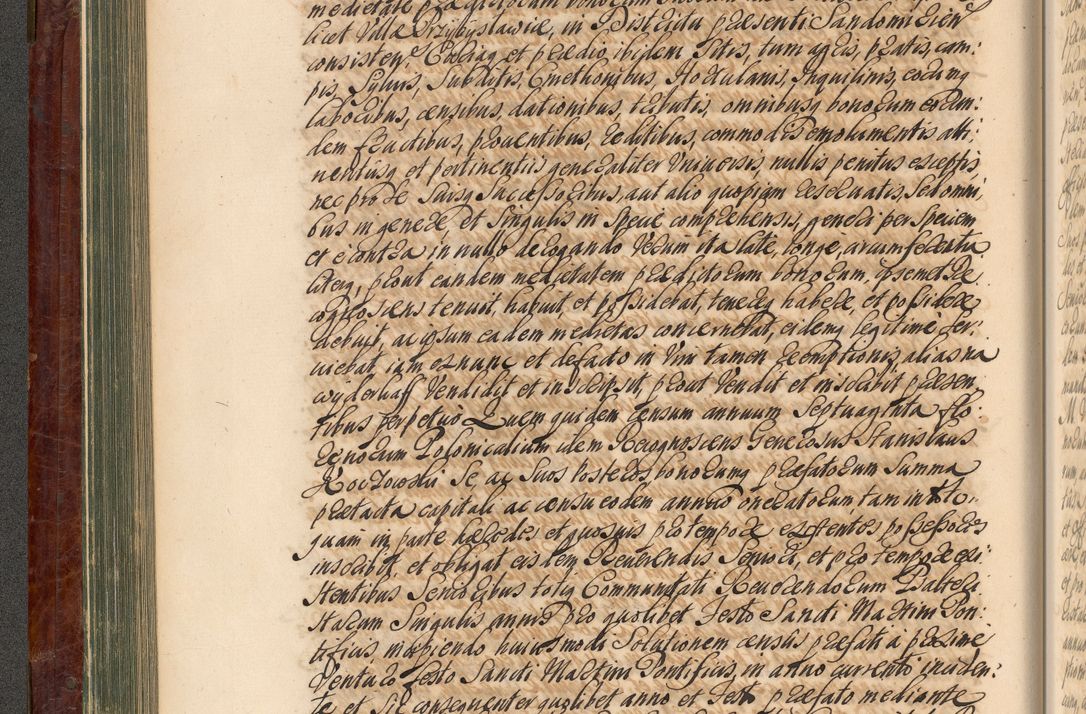 medietate praedictorum bonorum
licet Villae Przybysławice, in Districtu praesenti Sandomirien
consisten. Curiaq et praedio ibidem totis, tum agris, pratis, cam:
pis, Sylvis, Subditis, Cmethonibus, Hortulanis, Inquilinis, eorumq
laboribus, censibus, dationibus, tributis, omnibusq bonorum eorun:
dem fructibus, proventibus, reditibus, commodis emolumentis atti:
nentiisq et pertinentiis generaliter Universis, nullis penitus exceptis
nec pro se Suisq Successoribus, aut alio quopiam reservatis, Sed omni:
bus in genere, et Singulis in Specie comprehensis, genere per Speciem
et e contra in nullo derogando Verum ita late, longe, circumferentia
liter, prout eandem medietatem praedictorum bonorum, ipsemet Re
cognoscens tenuit, habuit et possidebat, tenereq habere, et possidere
debuit, ac ipsum eadem medietas concernebat, eidemq legitime ser:
viebat, iam ex nunc et defacto in Vim tamen reemptionis, alias na
wyderkaff Vendidit et inscripsit, prout Vendit et inscribit praesen
tibus perpetuo Quem quidem censum annuum Septuaginta flo:
renorum Polonicalium idem Recognoscens Generosus Stanislaus
Se, ac Suos Posteros bonorumq praefatorum Summa
praetacta capitali ac censu eodem annuo oneratorum, tam in toto
quam in parte haeredes et quosvis pro tempore existentes possessores
inscribit, et obligat eisdem Reverendis Seniori, et pro tempore exi:
stentibus Senioribus totiq Communitati Reverendorum Psalteri
starum Singulis annis pro quolibet Festo Sancti Martini Pon:
tificis incipiendo huiusmodi Solutionem census praefati a proxime
Venturo Festo Sancti Martini Pontificis, in anno currenti inciden:
te et Sic consequenter quolibet anno et Festo praefato mediante